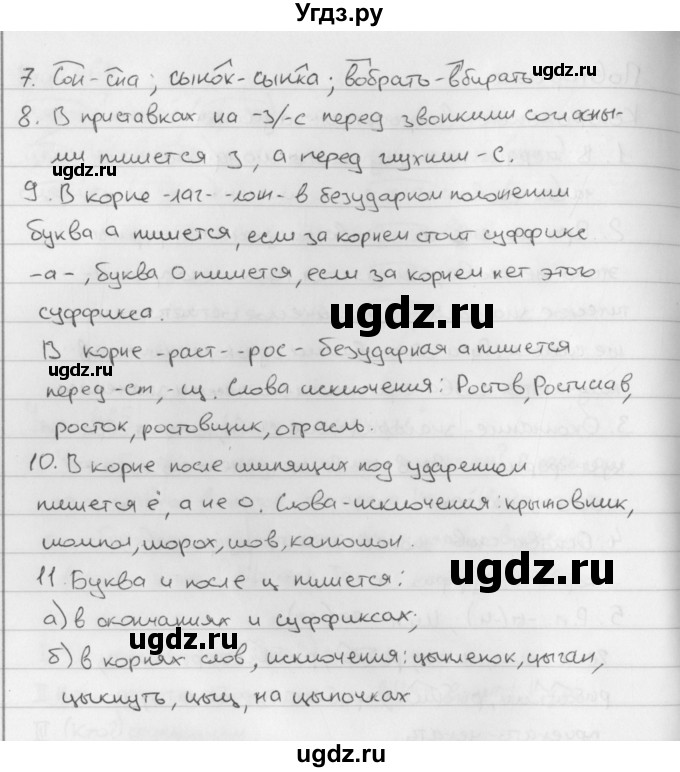 Угдз.ру
7. Сон - сна; сынок - сынка; вобрать - вбирать
ugdz.ru
8. В приставках на -з/-с перед звонкими согласны-
ми пишется з, а перед глухими - с.
ugdz.ru
ugdz.ru
9. В корне -лаг- -лож- в безударном положении
буква а пишется, если за корнем стоит суффикс
-а-, буква о пишется, если за корнем нет этого
суффикса.
ugdz.ru
В корне -раст- -рос- безударная а пишется
ugdz.ru
перед -ст, -щ. Слова исключения: Ростов, Ростислав,
росток, ростовщик, отрасль.
10. В корне после шипящих под ударением
пишется ё, а не о. Слова-исключения: крыжовник,
шомпол, шорох, шов, капюшон.
11. Буква и после ц пишется:
ugdz.ru
а) в окончаниях и суффиксах;
ugdz.ru
б) в корнях слов, исключения: цыпленок, цыган,
цыкнуть, цыц, на цыпочках
ugdz.ru